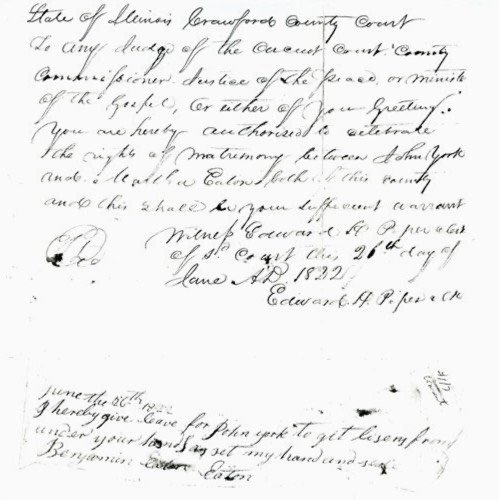 State of Illinois Crawford County Court
To any Judge of the Circuit Court County
Commissioner Justice of the peace, or minister
of the Gospel, or either of you Greeting.
You are hereby authorised to celebrate
the rights of matrimony between John York
and Martha Eaton both of this county
and this shall be your sufficient warrant
Witness Edward H. Piper clerk
of sd Court this 26th day of
June AD. 1822
Edward H. Piper clk
June the 26th 1822
I hereby give leave for John york to get lisens from
under your hand set my hand and seal
Benjamin Eaton
Eaton